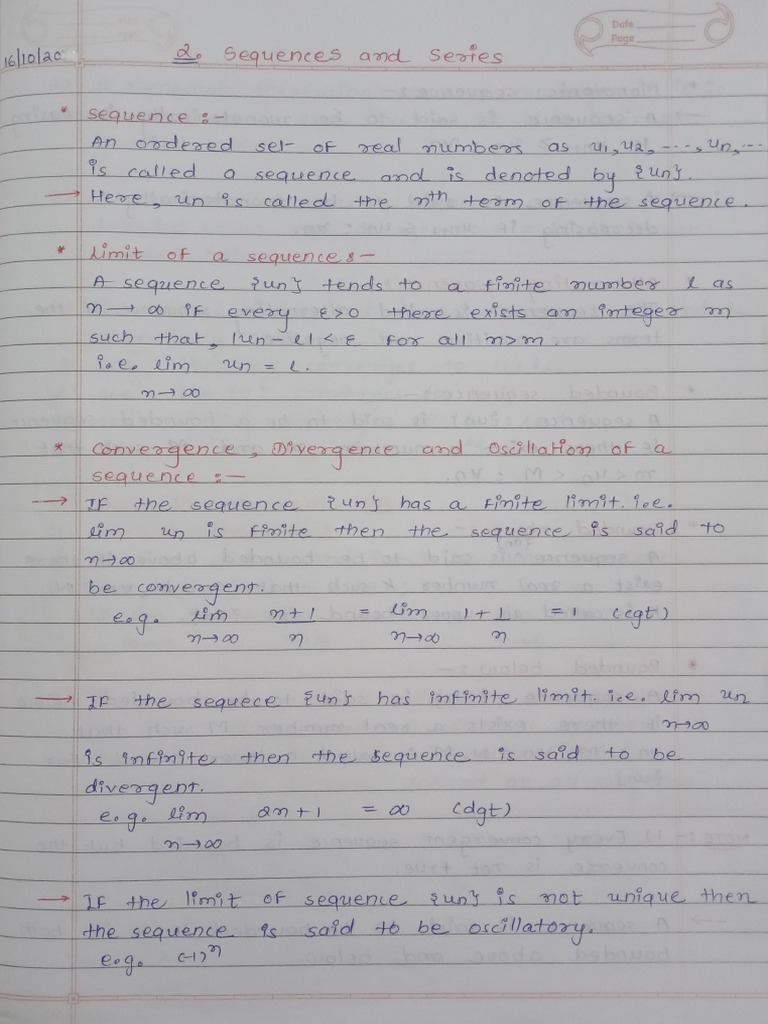 Date
Page
16/10/20
2. Sequences and Series
* Sequence :-
An ordered set of real numbers as u1, u2, ----, un, ---
is called a sequence and is denoted by {un}.
→ Here, un is called the nth term of the sequence.
* Limit of a sequence :-
A sequence {un} tends to a finite number l as
n → ∞ if every ε>0 there exists an integer m
such that, |un - l| < ε for all n>m
i.e. lim un = l.
n → ∞
* Convergence, Divergence and Oscillation of a
sequence :-
→ IF the sequence {un} has a finite limit. i.e.
lim un is finite then the sequence is said to
n→∞
be convergent.
e.g. lim n+1 = lim 1 + 1 = 1 (cgt)
n→∞ n n→∞ n
→ IF the sequece {un} has infinite limit. i.e. lim un
n→∞
is infinite then the sequence is said to be
divergent.
e.g. lim 2n+1 = ∞ (dgt)
n→∞
→ IF the limit of sequence {un} is not unique then
the sequence is said to be oscillatory.
e.g. (-1)^n